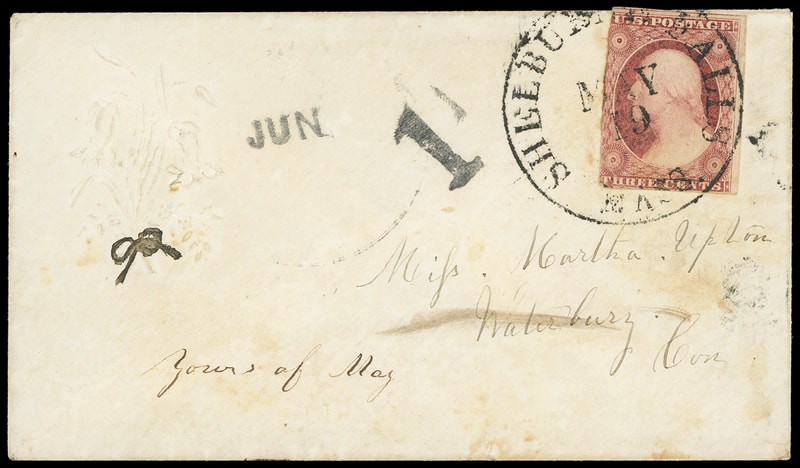 U.S. POSTAGE
THREE CENTS
SHELBURNE FALLS
MAY
19
MASS
JUN
1
Miss. Martha. Upton
Waterbury.
Con
Yours of May